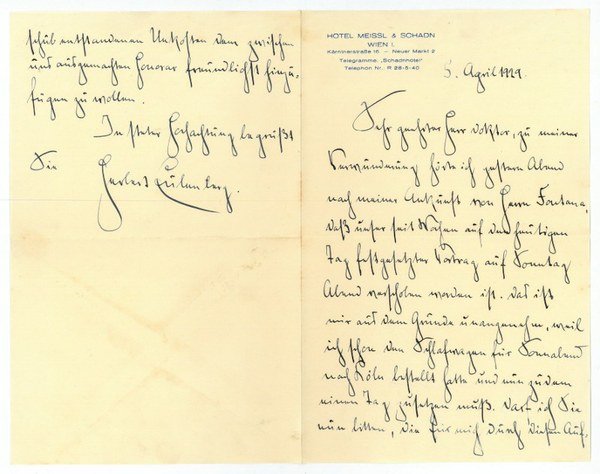 HOTEL MEISSL & SCHADN
WIEN I.
Kärntnerstraße 16 – Neuer Markt 2
Telegramme: „Schadnhotel"
Telephon Nr. R 28-5-40
5. April 1929
Sehr geehrter Herr Doktor, zu meiner
Verwunderung hörte ich gestern Abend
nach meiner Ankunft von Herrn Fontana,
daß unser seit Wochen auf den heutigen
Tag festgesetzter Vortrag auf Sonntag
Abend verschoben worden ist. Das ist
mir aus dem Grunde unangenehm, weil
ich schon den Schlafwagen für Sonnabend
nach Köln bestellt hatte und nun zudem
einen Tag zusetzen muß. Darf ich Sie
nun bitten, die für mich durch diesen Auf-
schub entstandenen Unkosten dem zwischen
uns ausgemachten Honorar freundlichst hinzu-
fügen zu wollen.
In steter Hochachtung begrüßt
Sie Herbert Eulenberg.